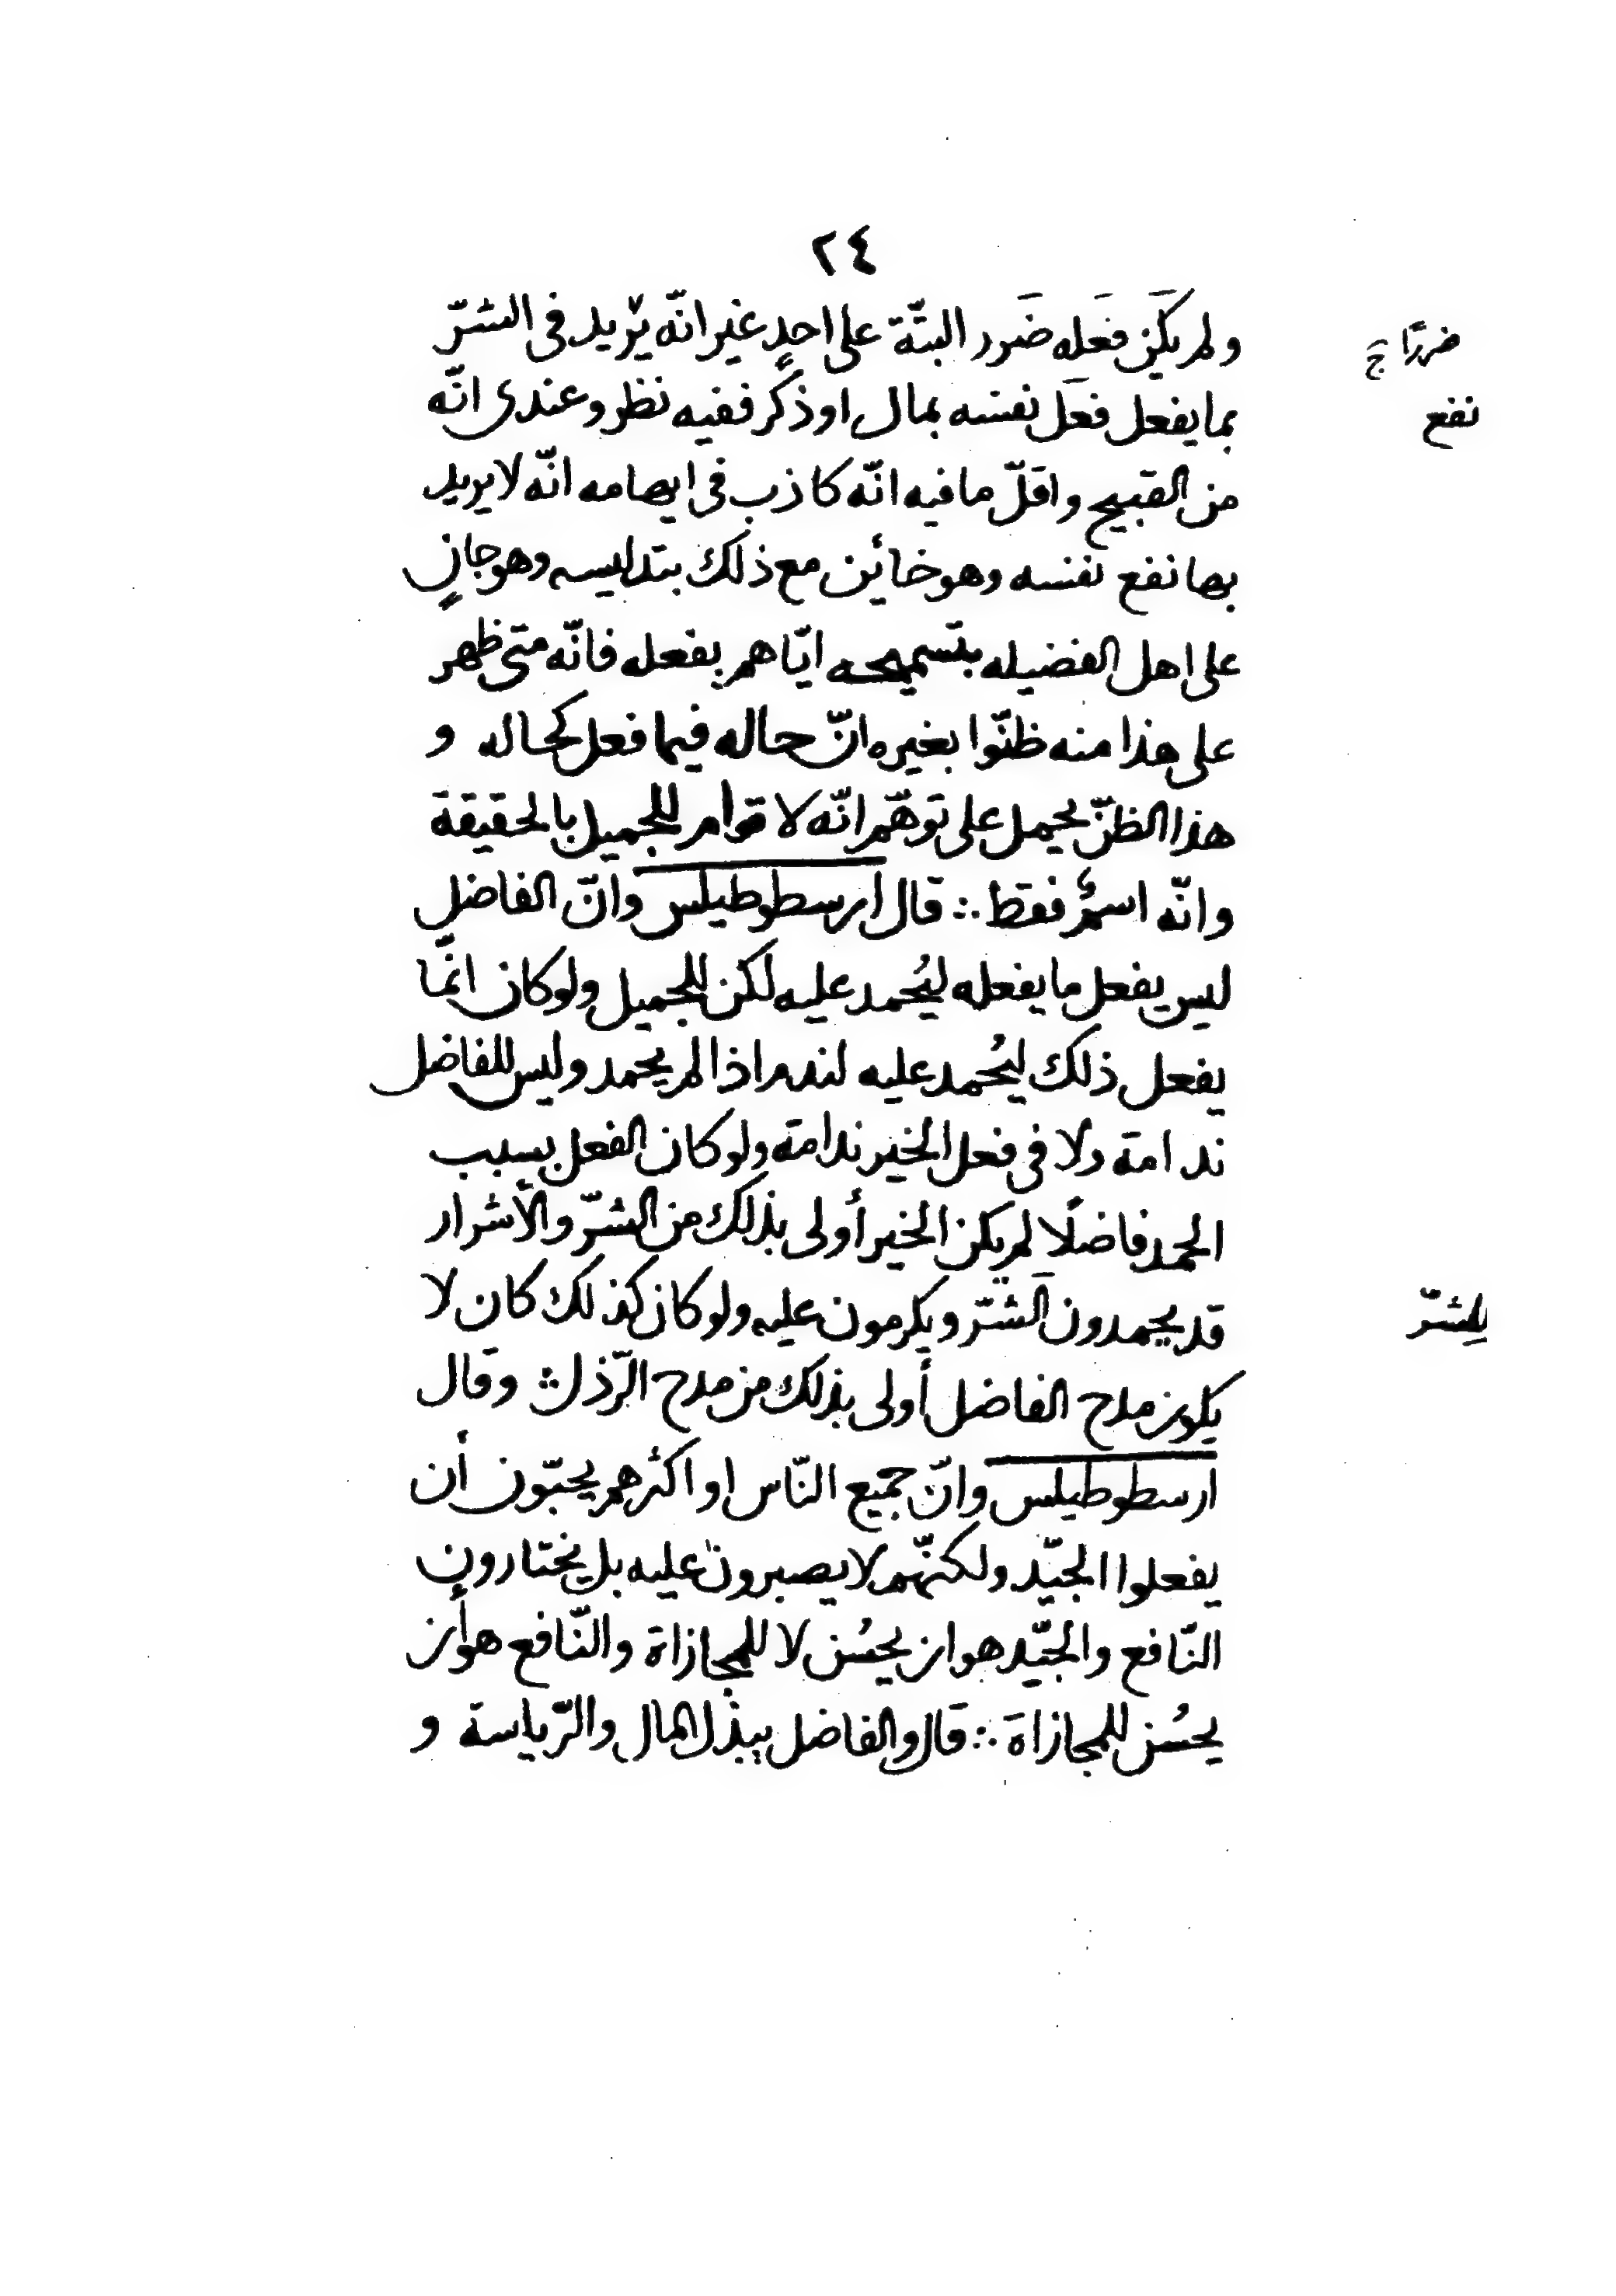 ٢٤
ولم يكن فعله ضرر البتّة على احدٍ غير انّه يريد فى الشرّ
ضررًا ج
بما يفعل فعل نفسه بمال او ذكر ففيه نظر وعندى انّه
نفع
من القبيح واقلّ ما فيه انّه كاذب فى ايهامه انّه لا يريد
بها نفع نفسه وهو خائن مع ذلك بتدليسه وهو جانٍ
على اهل الفضيله بتسميحه ايّاهم بفعله فانّه متى ظهر
على هذا منه ظنّوا بغيره انّ حاله فيما فعل كحاله و
هذا الظنّ يحمل على توهّم انّه لا قوام للجميل بالحقيقة
وانّه اسمٌ فقط ∴ قال ارسطوطيلس وانّ الفاضل
ليس يفعل ما يفعله ليُحمد عليه لكن للجميل ولو كان انّما
يفعل ذلك ليُحمد عليه لندم اذا لم يحمد وليس للفاضل
ندامة ولا فى فعل الخير ندامة ولو كان الفعل بسبب
الحمد فاضلًا لم يكن الخير أولى بذلك من الشرّ والأشرار
قد يحمدون الشرّ ويكرمون عليه ولو كان كذلك كان لا
للشرّ
يكون مدح الفاضل أولى بذلك من مدح الرّذل ∴ وقال
ارسطوطيلس وانّ جميع النّاس او اكثرهم يحبّون أن
يفعلوا الجيّد ولكنّهم لا يصبرون عليه بل يختارون
النّافع والجيّد هو ان يحسُن لا للمجازاة والنّافع هو أن
يحسُن للمجازاة ∴ قال والفاضل يبذل المال والرّياسة و